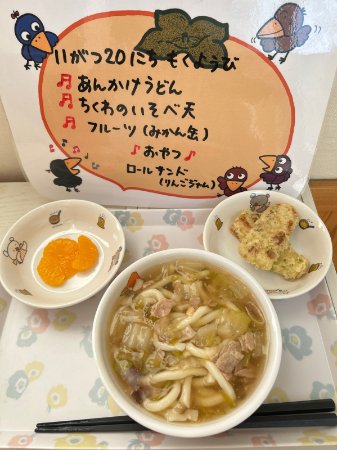 11がつ20にちもくようび
あんかけうどん
ちくわのいそべ天
フルーツ(みかん缶)
おやつ
ロールサンド
(りんごジャム)